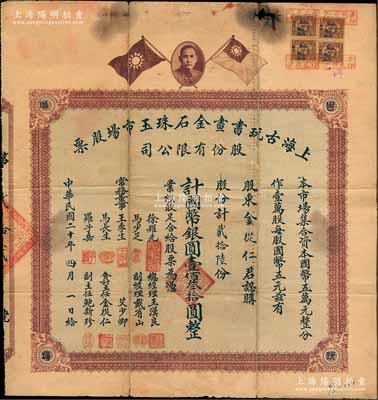 上海陽明拍賣
上海古玩書畫金石珠玉市場股票
股份有限公司
本市場集合資本國幣五萬元整分
作壹萬股每股國幣五元茲有
股東金從仁君認購
股份計貳拾陸份
計國幣銀圓壹佰叁拾圓整
業經收足合給股票為憑
常務董事
徐雅光
馬少芝
王季生
馬長生
羅子嘉
艾少卿
總經理王漢良
副經理戴省山
食計主任金從仁
副主任鮑新珍
中華民國二十年四月一日給